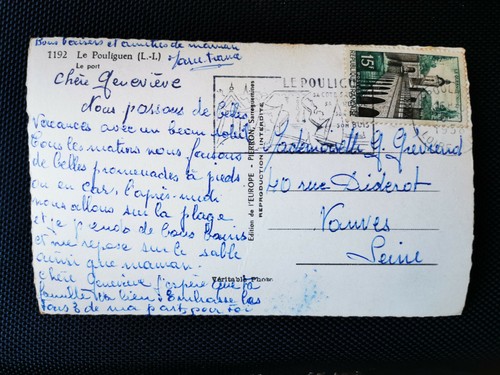 Bons baisers et amitiés de maman
1192 Le Pouliguen (L.-I.)
Le port
Chère Geneviève
Nous passons de belles
vacances avec un beau soleil
Tous les matins nous faisons
de belles promenades à pieds
ou en car, l'après-midi
nous allons sur la plage
et je prends de bons bains
et me repose sur le sable
ainsi que maman.
Chère Geneviève j'espère que ta
famille va bien. Embrasse les
tous de ma part, pour toi
Véritable Photo
Édition de l'EUROPE - PIERRON, Sarreguemines
REPRODUCTION INTERDITE
LE POULIGUEN
15F
Mademoiselle G.
40 rue Diderot
Vanves
Seine